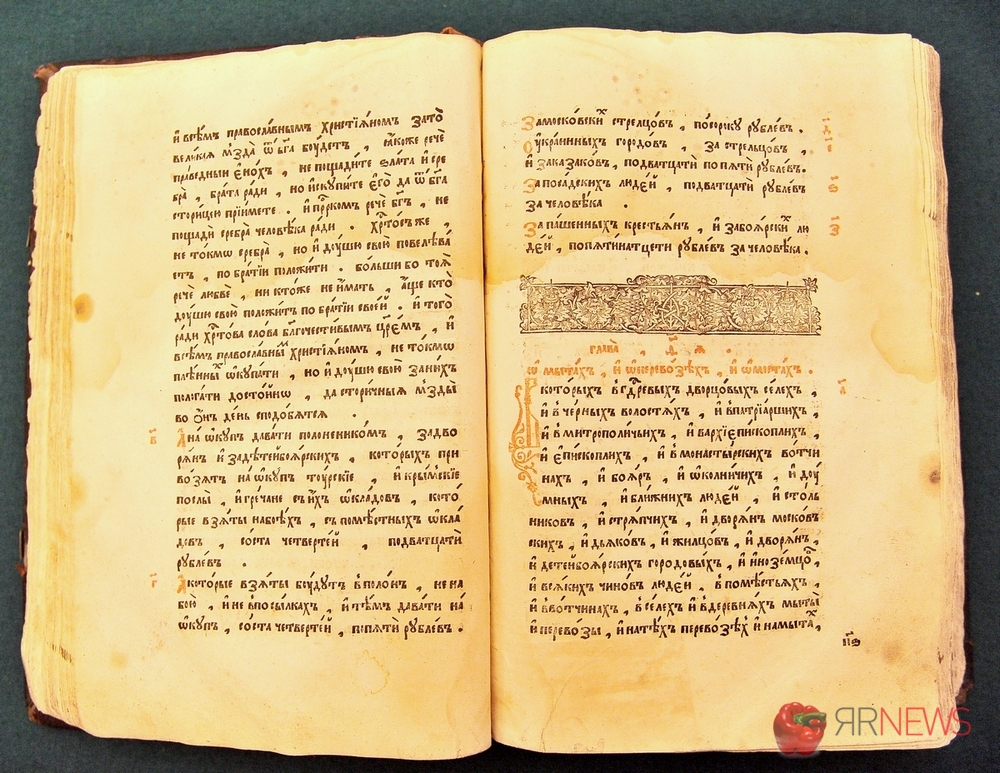 и҆ всѣ́мъ православнымъ хрис́тїѧномъ зато̀
великаѧ мзда ѿ бг҃а бꙋдетъ , ꙗкоже рече
праведныи є҆но́хъ , не пощадите зла́та и҆ сре
бра̀ , бра́та ради , но и҆скупите є҆го̀ да ѿ бг҃а
сторицею прїимете . и҆ прⷪ҇ркомъ рече бг҃ъ , не
пощади сребра̀ человѣ́ка ради . хрⷭ҇тосъ же ,
не токмѡ сребра̀ , но и҆ дꙋшю свою̀ повелѣва
етъ , по братїи положити . больши бо тоѧ̀
рече любвѐ , никтоже не имать , а҆ще кто
дꙋшю свою̀ положитъ по братїи свое́й . и҆ того̀
ради хрⷭ҇това слова благочестивымъ цр҃емъ , и҆
всѣ́мъ православнымъ хрис́тїѧномъ , не токмѡ
плѣ́нныхъ ѡ҆купати , но и҆ дꙋшю свою̀ за нихъ
полагати досто́йнѡ , да сторичныѧ мзды̀
во ѻ҆нъ день сподобѧтсѧ .
в҃ А на ѡ҆купъ давати полоненикомъ , за дво
рѧ́нъ и҆ за дѣтей боѧ́рскихъ , которыхъ при
во́зѧтъ на ѡ҆купъ тꙋрскїе , и҆ крымскїе
послы̀ , и҆ гречане съ и҆хъ ѡ҆кладовъ , кото́
рые взѧты на боѧ́хъ , съ помѣстныхъ ѡ҆кла
довъ , со ста четвертей , по двацати
рублевъ .
г҃ А которые взѧты бꙋдутъ в поло́нъ , не на
бою̀ , и҆ не в посылкахъ , и҆ тѣ́мъ давати на
ѡ҆купъ , со ста четвертей , по пѧти рублевъ .
За московскихъ стрелцовъ , по сороку рублевъ . д҃
Оу҆краинныхъ городовъ , за стрельцовъ , є҃
и҆ за казаковъ , по двацати по пѧти рублевъ .
За посадскихъ людей , по двацати рублевъ ѕ҃
за человѣка .
За пашенныхъ крестьѧнъ , и҆ за боѧрскихъ лю з҃
дей , по пѧтинатцети рублевъ за человѣка .
глава , ѳ҃ , ѧ .
ѡ҆ мытахъ , и҆ ѡ҆ перевозѣхъ , и҆ ѡ҆ мостахъ .
а҃ которыхъ в гдⷭ҇ревыхъ дворцовыхъ се́лехъ ,
и҆ в черныхъ волостѧхъ , и҆ в патрїаршихъ ,
и҆ в митрополичьихъ , и҆ в архїє҆пископлихъ ,
и҆ є҆пископлихъ , и҆ в монастырскихъ вотчи
нахъ , и҆ боѧ́ръ , и҆ ѡ҆колничихъ , и҆ дꙋ
мныхъ , и҆ ближнихъ людей , и҆ столь
никовъ , и҆ стрѧпчихъ , и҆ дворѧ́нъ москов
скихъ , и҆ дьѧковъ , и҆ жилцовъ , и҆ дворѧ́нъ ,
и҆ детей боѧрскихъ городовыхъ , и҆ и҆ноземцовъ ,
и҆ всѧкихъ чиновъ людей , в помѣстьѧхъ ,
и҆ в вотчинахъ , в се́лехъ и҆ в деревнѧхъ мыты̀
и҆ перевозы , и҆ на тѣхъ перевозѣхъ и҆ на мытахъ ,
ЯRNEWS